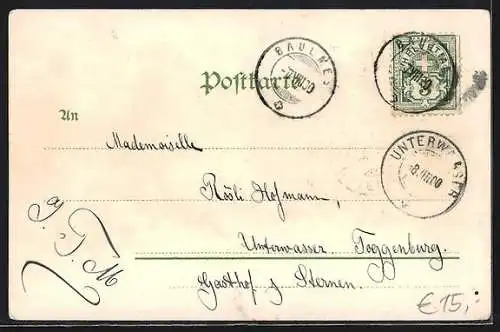 BAULMES
Postkarte
BAULMES
7 VII 00
An
UNTERWASSER
8. VII 00
Mademoiselle
Rösli Hofmann,
Unterwasser Toggenburg.
Gasthof z Sternen.
€15,-